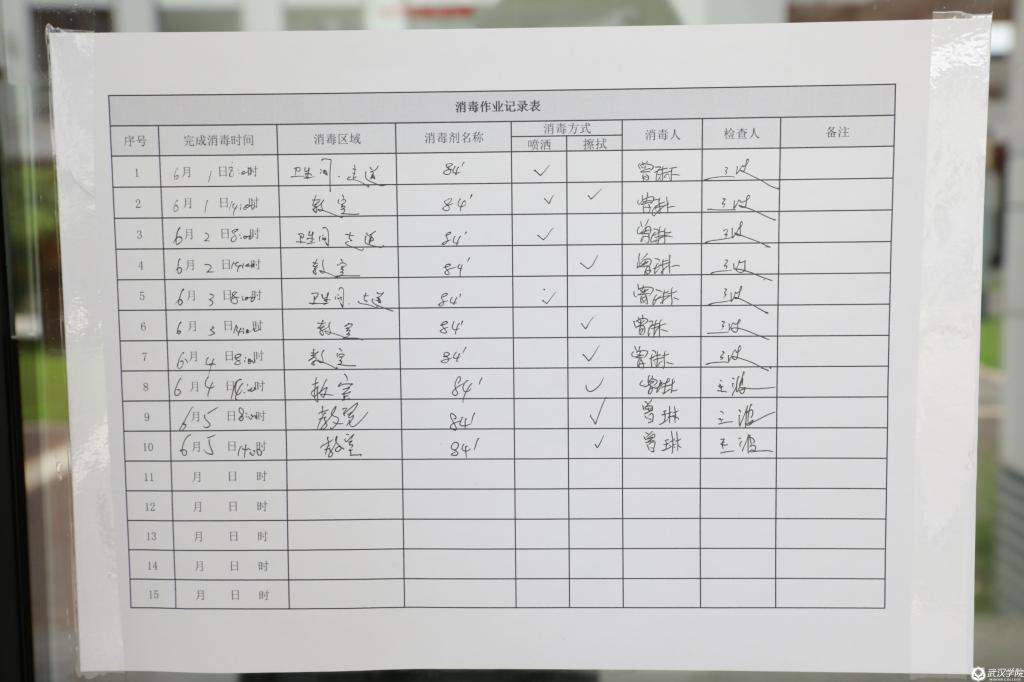 消毒作业记录表
序号 完成消毒时间 消毒区域 消毒剂名称 消毒方式 消毒人 检查人 备注
喷洒 擦拭
1 6月 1 日8:00时 卫生间、走道 84' ✓ 曾琳 王波
2 6月 1 日14:00时 教室 84' ✓ ✓ 曾琳 王波
3 6月 2 日8:00时 卫生间 走道 84' ✓ 曾琳 王波
4 6月 2 日14:00时 教室 84' ✓ 曾琳 王波
5 6月 3 日8:00时 卫生间、走道 84' ✓ 曾琳 王波
6 6月 3 日14:00时 教室 84' ✓ 曾琳 王波
7 6月 4 日8:00时 教室 84' ✓ 曾琳 王波
8 6月 4 日14:00时 教室 84' ✓ 曾琳 王波
9 6月 5 日8:00时 教室 84' ✓ 曾琳 王波
10 6月 5 日14:00时 教室 84' ✓ 曾琳 王波
11 月 日 时
12 月 日 时
13 月 日 时
14 月 日 时
15 月 日 时
武汉学院